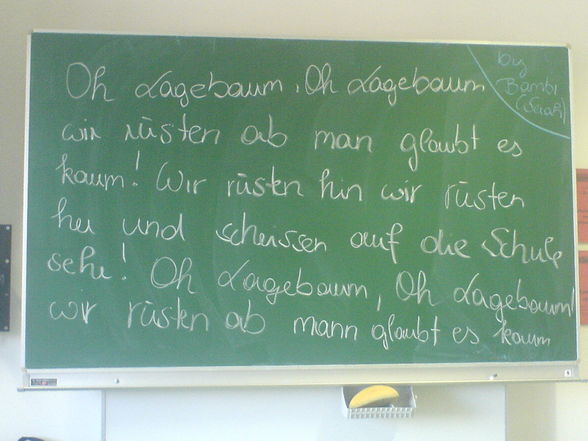 Oh Lagebaum, Oh Lagebaum
wir rüsten ab man glaubt es
kaum! Wir rüsten hin wir rüsten
her und scheissen auf die Schule
sehr! Oh Lagebaum, Oh Lagebaum!
wir rüsten ab mann glaubt es kaum
by
Bambi
(Sarah)